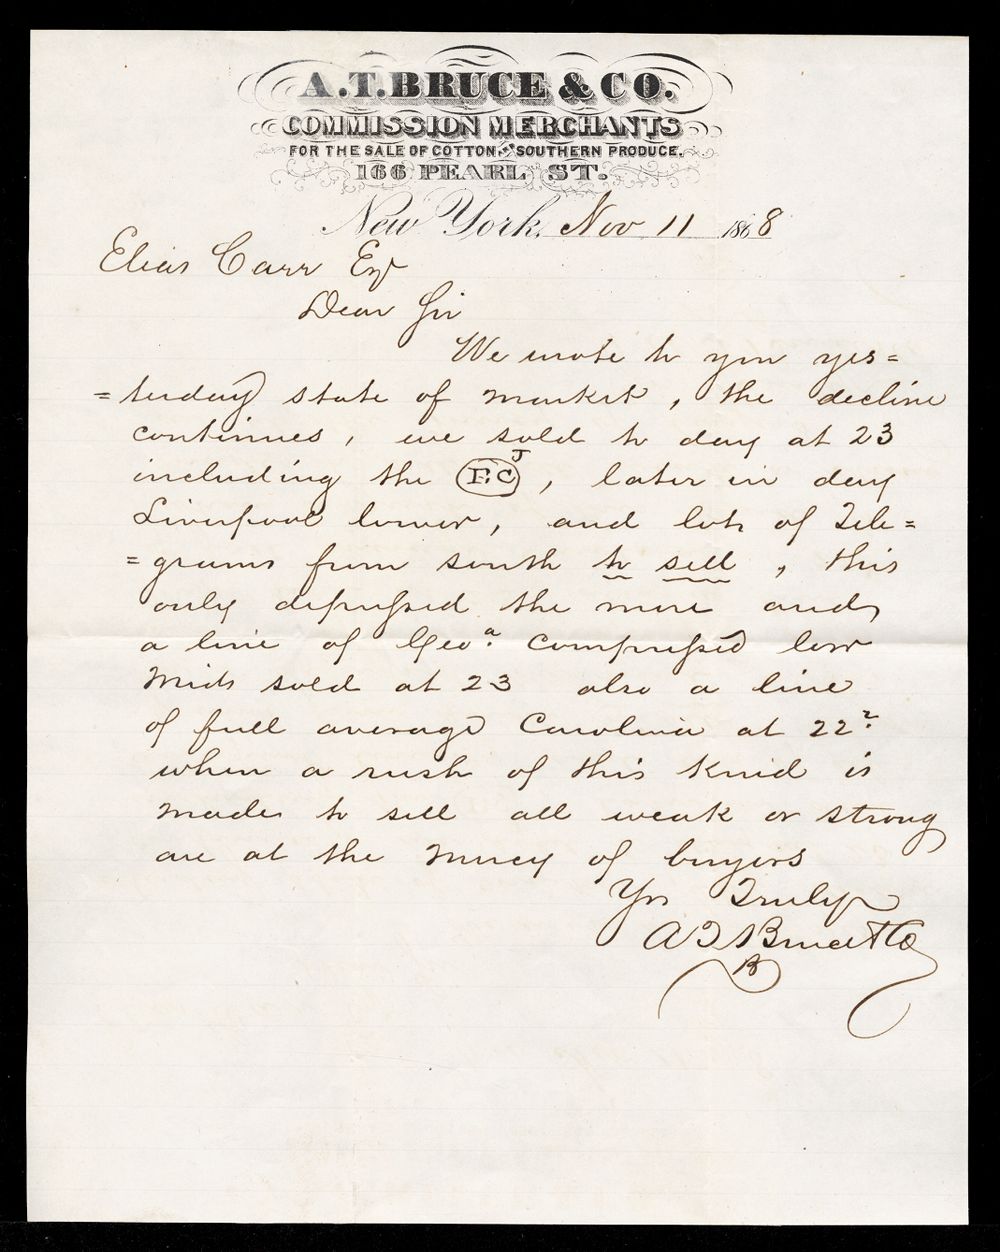 A.T. BRUCE & CO.
COMMISSION MERCHANTS
FOR THE SALE OF COTTON AND SOUTHERN PRODUCE.
166 PEARL ST.
New York, Nov 11 1868
Elias Carr Esq
Dear Sir
We wrote to you yes=
=terday state of market, the decline
continues, we sold to day at 23
including the E.C J, later in day
Liverpool lower, and lots of Tele=
=grams from south to sell, this
only depressed the more and
a line of Geoa. compressed low
Mids sold at 23 also a line
of full average Carolina at 22 2/
when a rush of this kind is
made to sell all weak or strong
are at the mercy of buyers
Yrs Truly
A T Bruce & Co
B